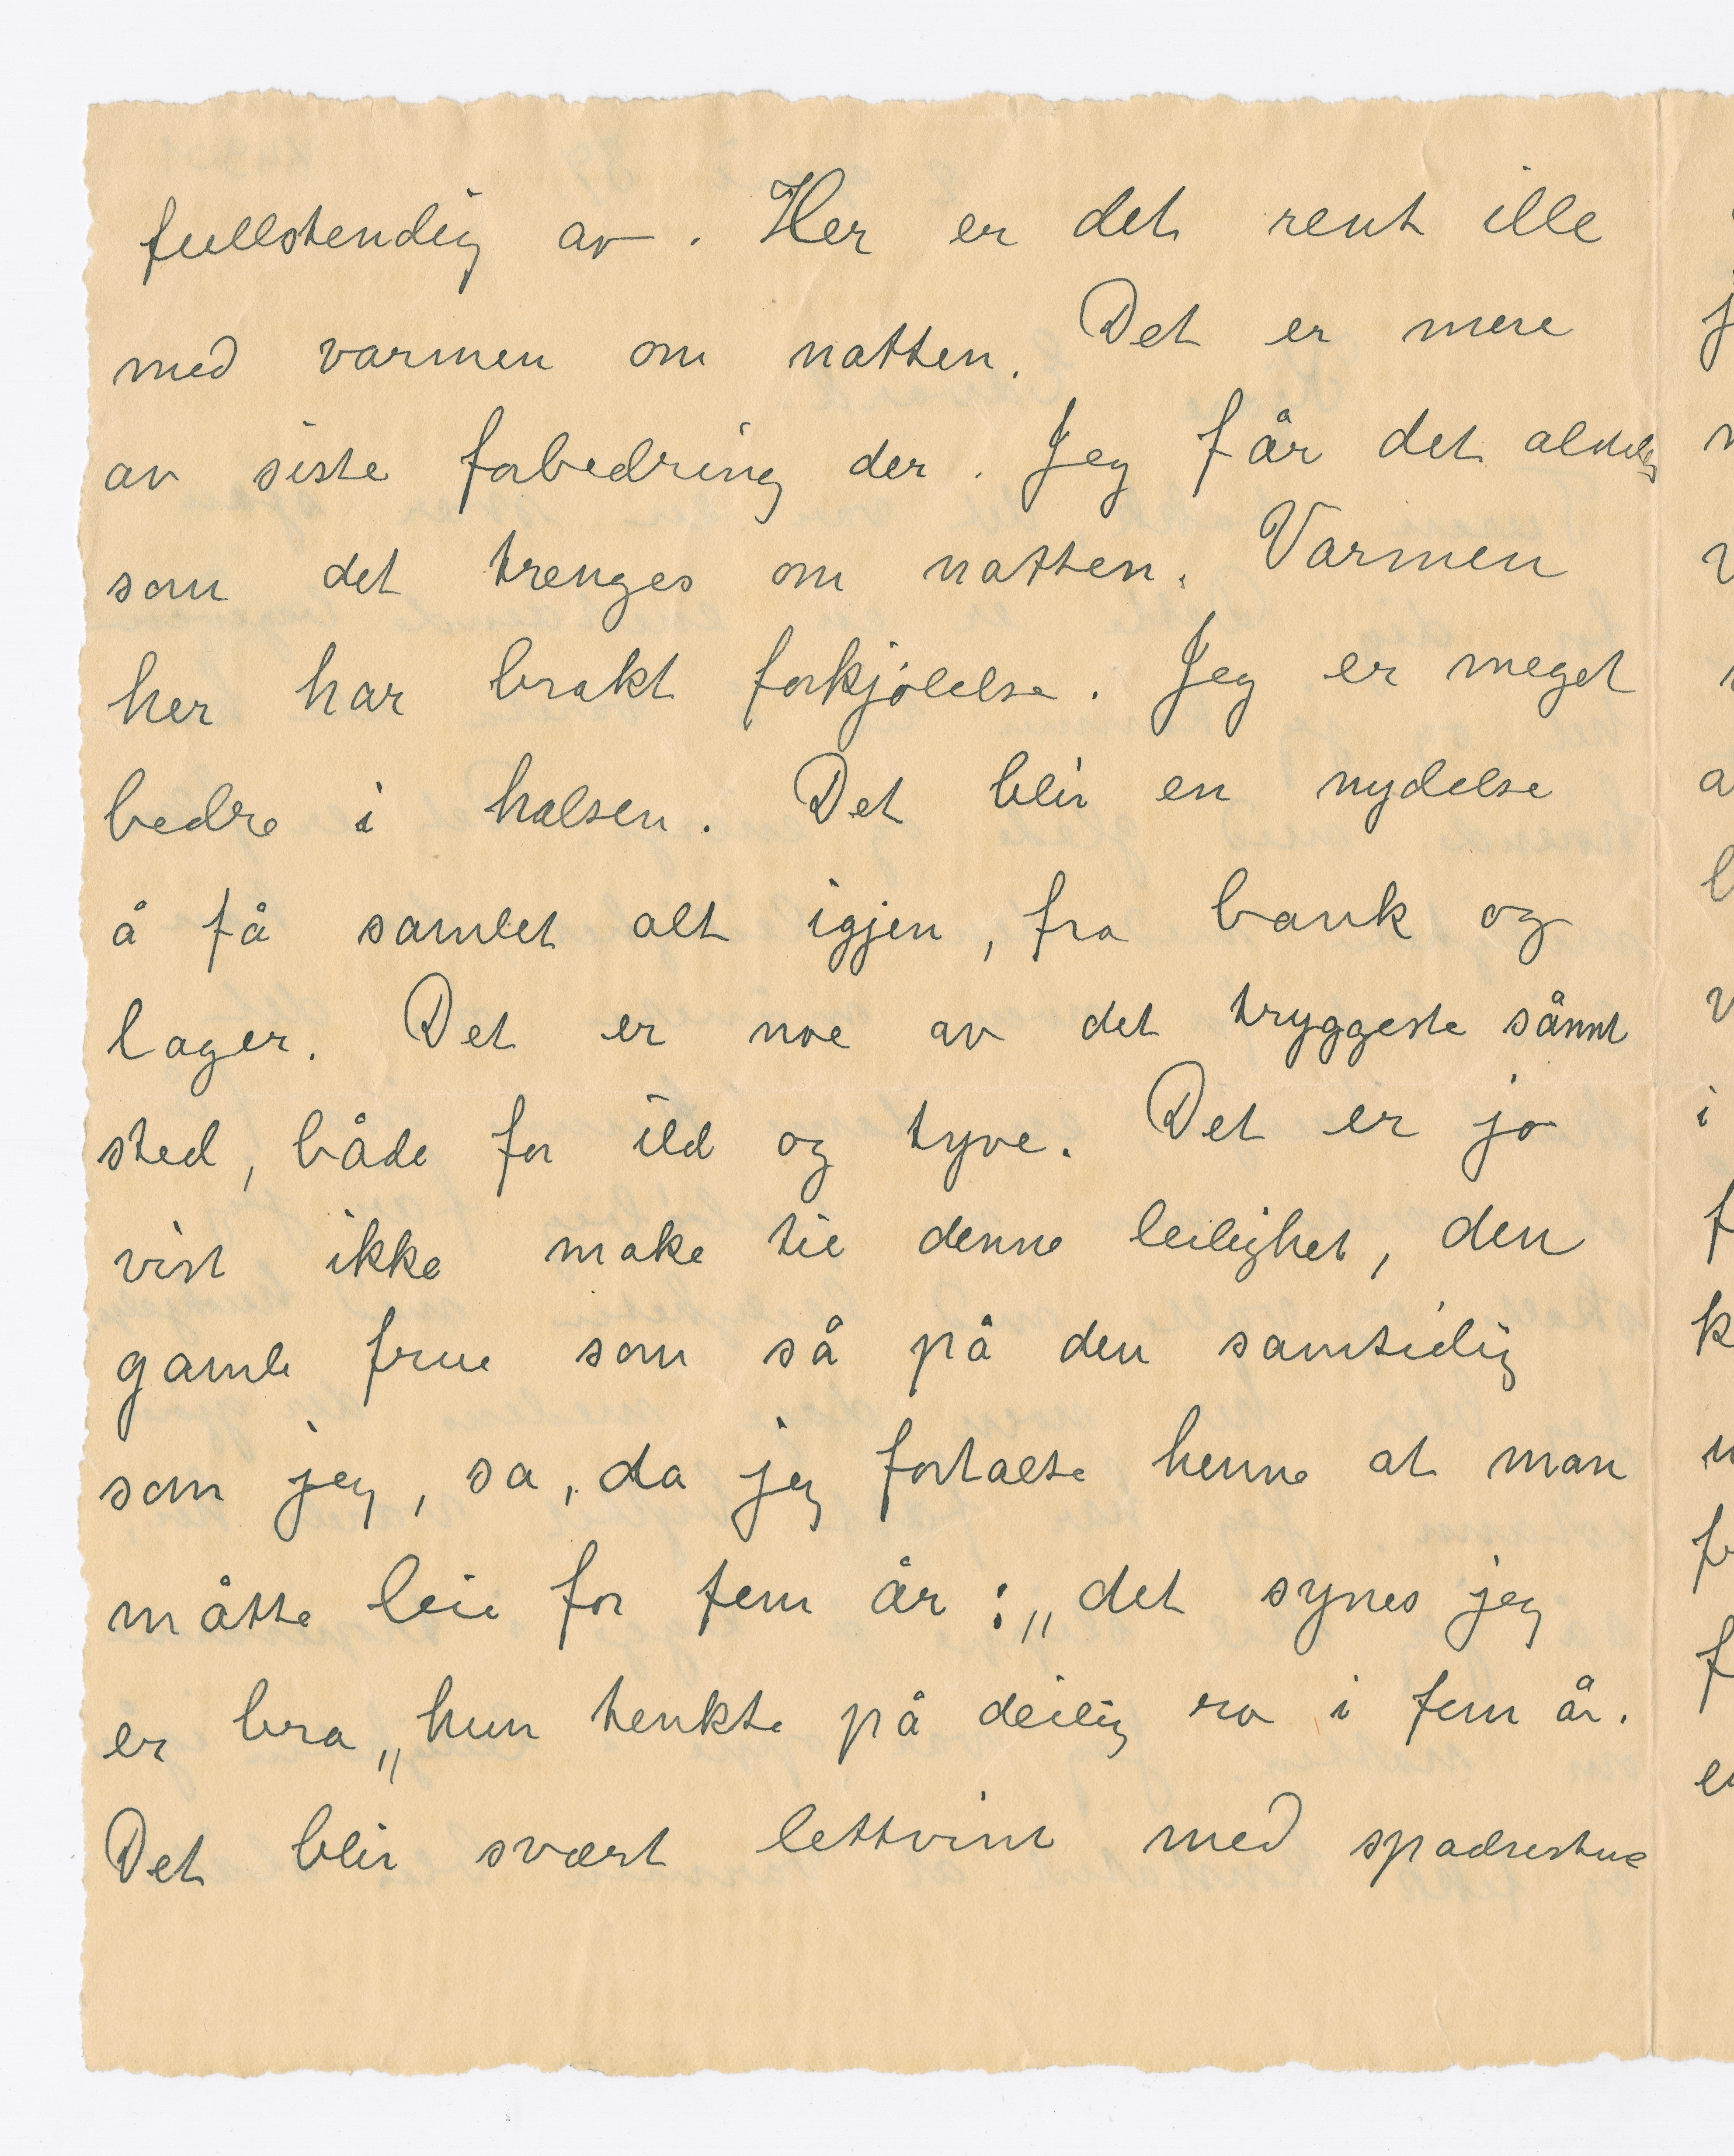 fullstendig av. Her er det rent ille
med varmen om natten. Det er mere
av siste forbedring der. Jeg får det aldeles
som det trenges om natten. Varmen
her har brakt forkjølelse. Jeg er meget
bedre i halsen. Det blir en nydelse
å få samlet alt igjen, fra bank og
lager. Det er noe av det tryggeste sånnt
sted, både for ild og tyve. Det er jo
vist ikke make til denne leilighet, den
gamle frue som så på den samtidig
som jeg, sa, da jeg fortalte henne at man
måtte leie for fem år: „det synes jeg
er bra„ hun tenkte på deilig ro i fem år.
Det blir svært lettvint med